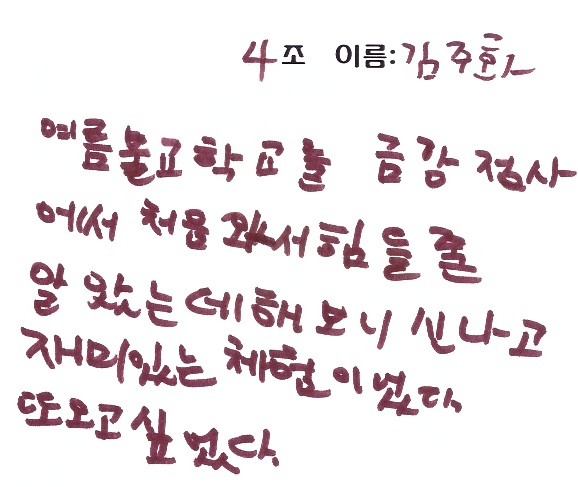 4조 이름: 김주환
여름불교학교늘 금강정사
에서 처음 와서힘들줄
알 았는데해보니 신나고
재미있는 체험이었다.
또오고싶었다.